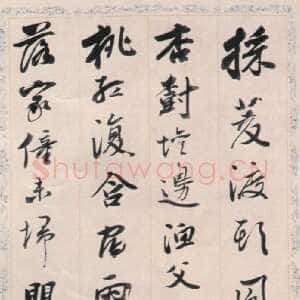 採菱渡頭風
杏樹壇邊漁父
桃紅復含宿雨
落家僮未掃
Shufawang.cn